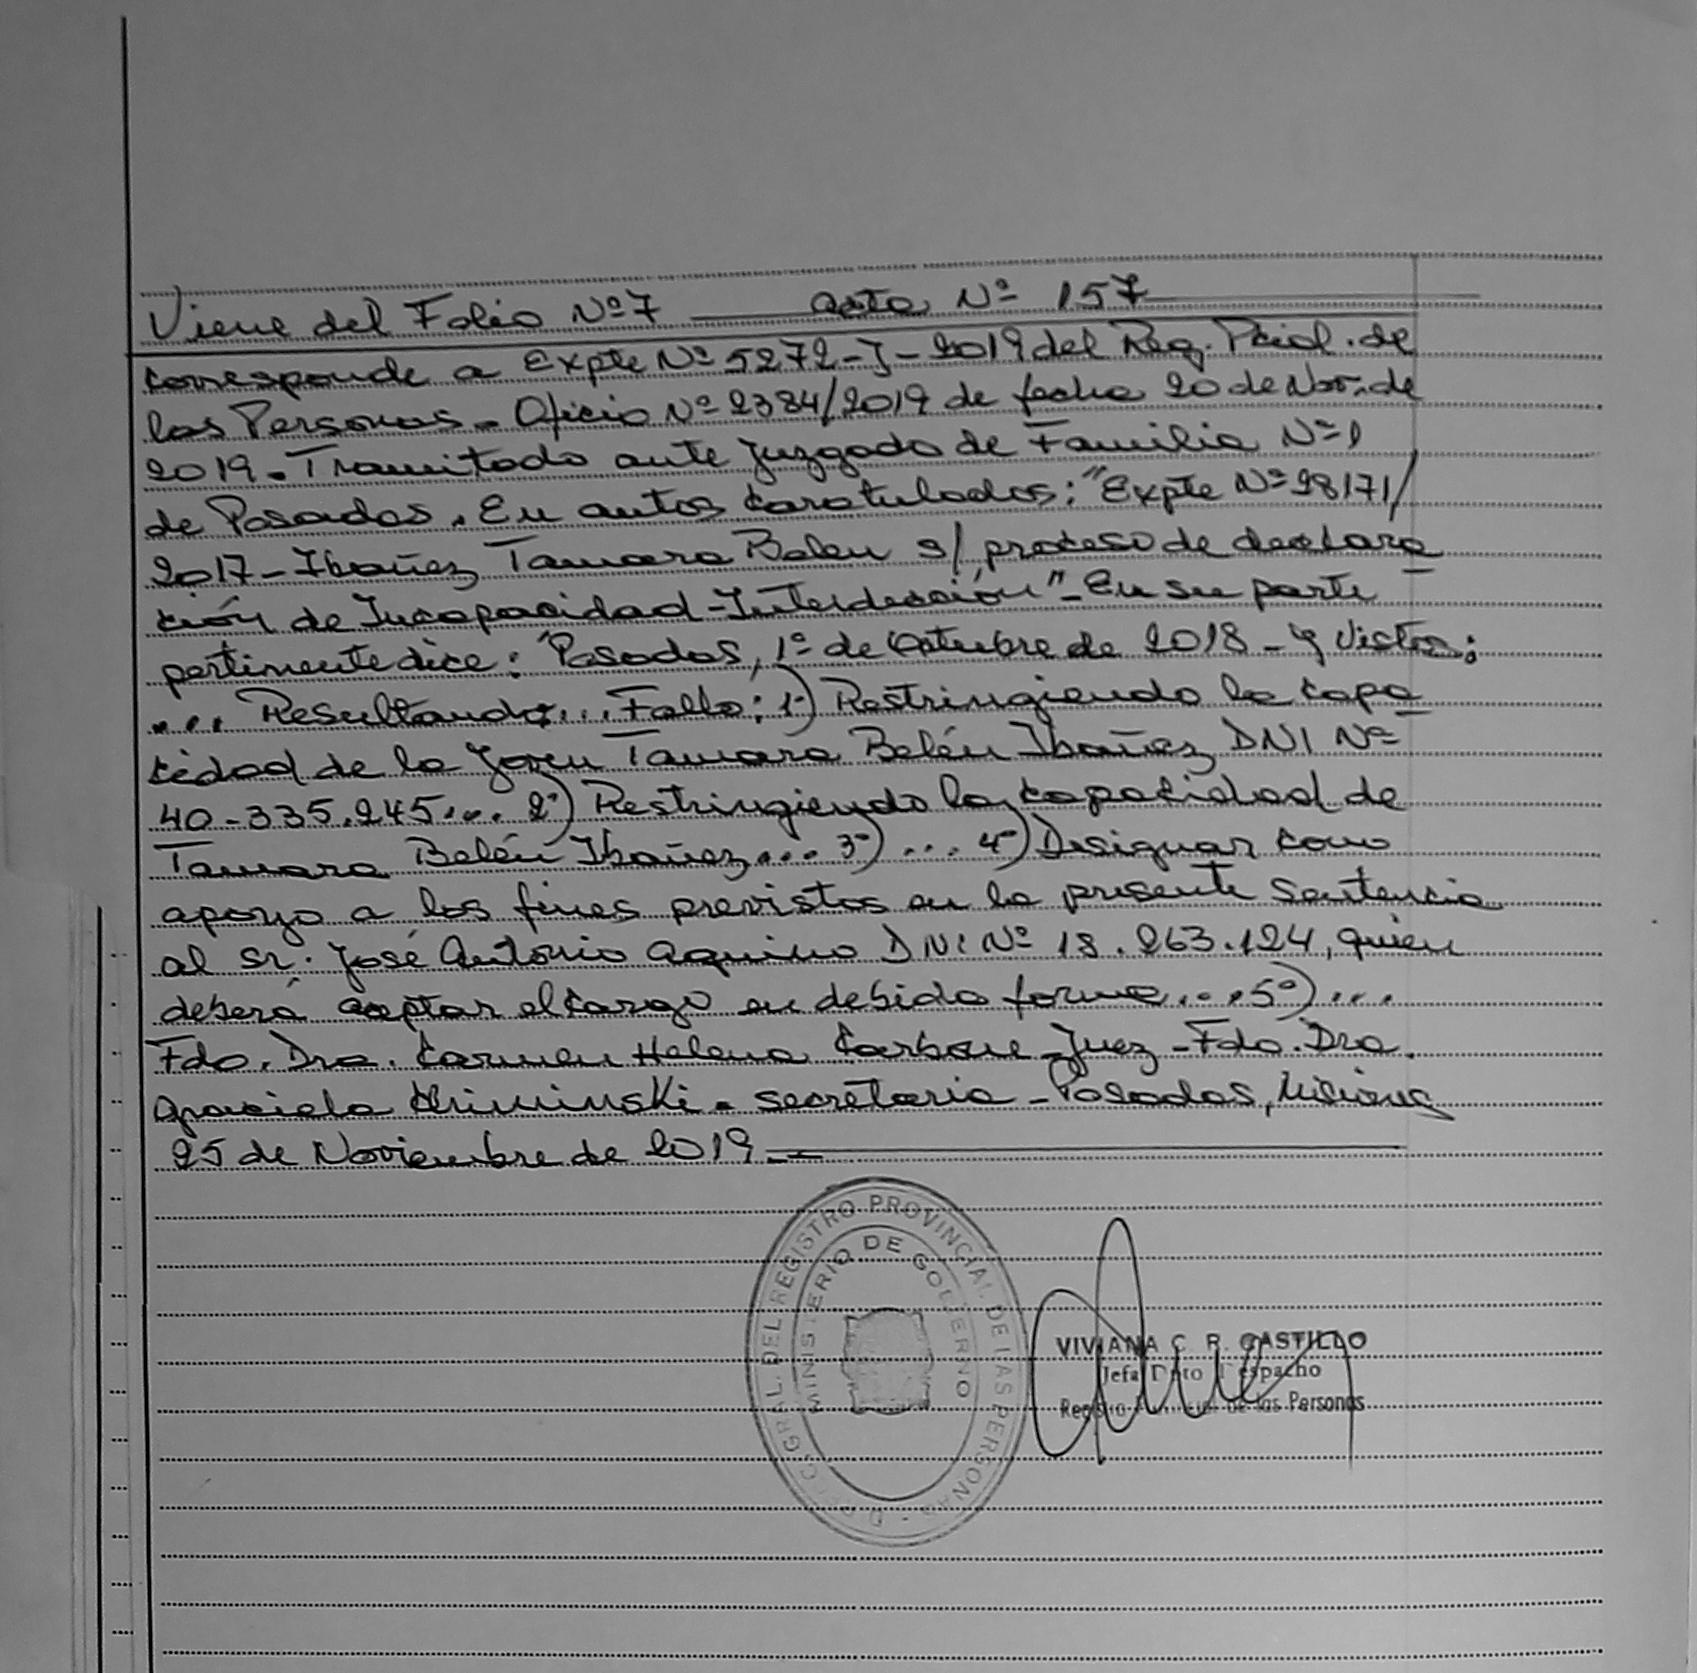 Viene del Folio Nº 7 — acta Nº 157
corresponde a Expte Nº 5272-J-2019 del Reg. Pcial. de
las Personas. Oficio Nº 2384/2019 de fecha 20 de Nov. de
2019. Tramitado ante Juzgado de Familia Nº 1
de Posadas. En autos caratulados: "Expte Nº 98171/
2017-Ibañez Tamara Belen s/ proceso de declara
ción de Incapacidad-Interdicción" - En su parte
pertinente dice: "Posadas, 1º de Octubre de 2018 - y Vistos:
... Resultando:... Fallo: 1º) Restringiendo la capa
cidad de la joven Tamara Belén Ibañez DNI Nº
40-335.245... 2º) Restringiendo la capacidad de
Tamara Belén Ibañez... 3º) ... 4º) Designar como
apoyo a los fines previstos en la presente sentencia
al Sr. José Antonio Aquino DNI Nº 18.263.124, quien
deberá aceptar el cargo en debida forma... 5º) ...
Fdo. Dra. Carmen Helena Carbone - Juez - Fdo. Dra.
Graciela - secretaria - Posadas, Misiones
25 de Noviembre de 2019.—
GRAL. DEL REGISTRO PROVINCIAL DE LAS PERSONAS
MINISTERIO DE GOBIERNO
VIVIANA C. R. CASTILLO
Jefa Dpto Despacho
Registro Provincial de las Personas